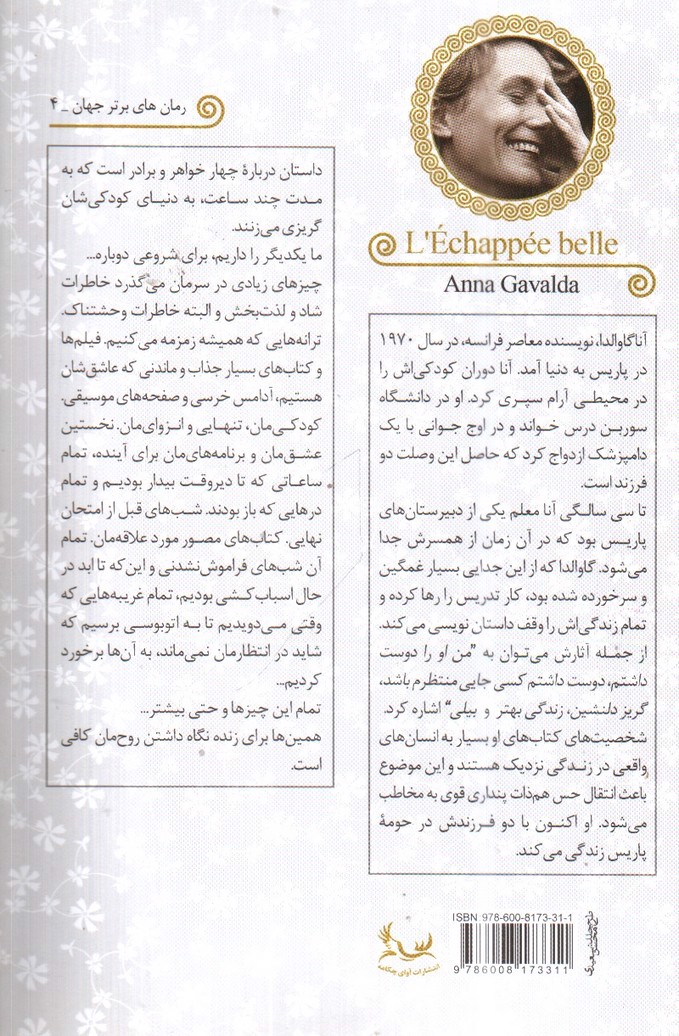 L'Échappée belle
Anna Gavalda
آنا گاوالدا، نویسنده معاصر فرانسه، در سال ۱۹۷۰
در پاریس به دنیا آمد. آنا دوران کودکی‌اش را
در محیطی آرام سپری کرد. او در دانشگاه
سوربن درس خواند و در اوج جوانی با یک
دامپزشک ازدواج کرد که حاصل این وصلت دو
فرزند است.
تا سی سالگی آنا معلم یکی از دبیرستان‌های
پاریس بود که در آن زمان از همسرش جدا
می‌شود. گاوالدا که از این جدایی بسیار غمگین
و سرخورده شده بود، کار تدریس را رها کرده و
تمام زندگی‌اش را وقف داستان نویسی می‌کند.
از جمله آثارش می‌توان به "من او را دوست
داشتم، دوست داشتم کسی جایی منتظرم باشد،
گریز دلنشین، زندگی بهتر و بیلی" اشاره کرد.
شخصیت‌های کتاب‌های او بسیار به انسان‌های
واقعی در زندگی نزدیک هستند و این موضوع
باعث انتقال حس هم‌ذات پنداری قوی به مخاطب
می‌شود. او اکنون با دو فرزندش در حومهٔ
پاریس زندگی می‌کند.
رمان های برتر جهان _ ۴
داستان دربارهٔ چهار خواهر و برادر است که به
مدت چند ساعت، به دنیای کودکی‌شان
گریزی می‌زنند.
ما یکدیگر را داریم، برای شروعی دوباره...
چیزهای زیادی در سرمان می‌گذرد خاطرات
شاد و لذت‌بخش و البته خاطرات وحشتناک.
ترانه‌هایی که همیشه زمزمه می‌کنیم. فیلم‌ها
و کتاب‌های بسیار جذاب و ماندنی که عاشق‌شان
هستیم، آدامس خرسی و صفحه‌های موسیقی.
کودکی‌مان، تنهایی و انزوای‌مان. نخستین
عشق‌مان و برنامه‌های‌مان برای آینده، تمام
ساعاتی که تا دیروقت بیدار بودیم و تمام
درهایی که باز بودند. شب‌های قبل از امتحان
نهایی. کتاب‌های مصور مورد علاقه‌مان. تمام
آن شب‌های فراموش‌نشدنی و این‌که تا ابد در
حال اسباب‌کشی بودیم، تمام غریبه‌هایی که
وقتی می‌دویدیم تا به اتوبوسی برسیم که
شاید در انتظارمان نمی‌ماند، به آن‌ها برخورد
کردیم...
تمام این چیزها و حتی بیشتر...
همین‌ها برای زنده نگاه داشتن روح‌مان کافی
است.
ISBN 978-600-8173-31-1
9 786008 173311
انتشارات آوای چکامه